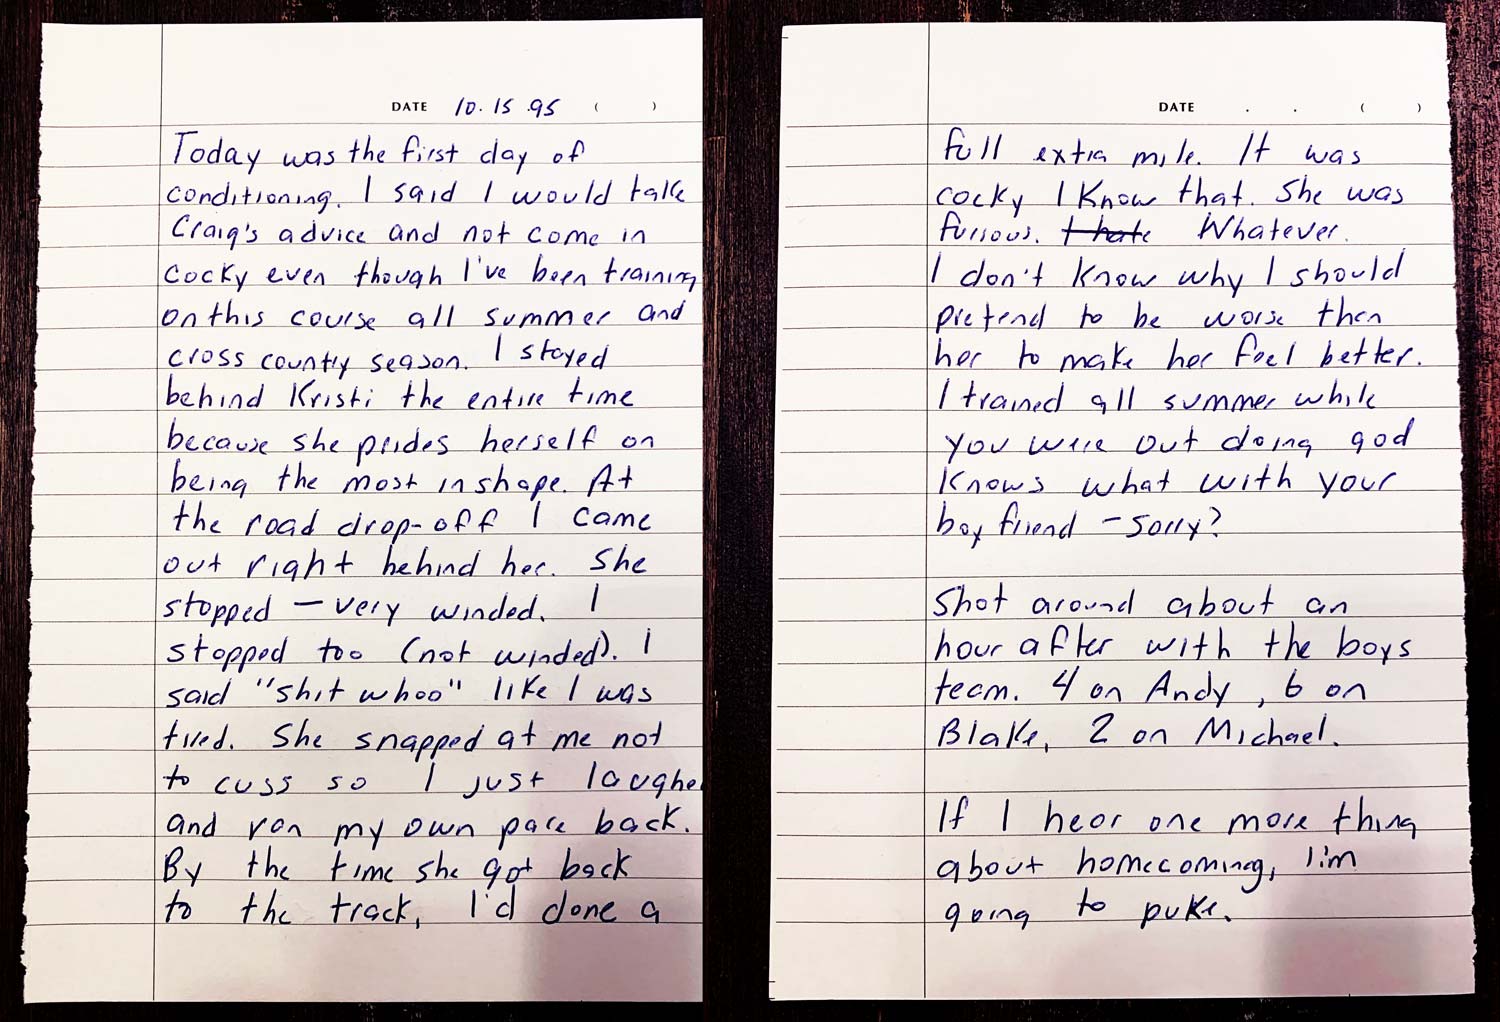 DATE 10.15.95 ( )
Today was the first day of
conditioning. I said I would take
Craig's advice and not come in
cocky even though I've been training
on this course all summer and
cross country season. I stayed
behind Kristi the entire time
because she prides herself on
being the most in shape. At
the road drop-off I came
out right behind her. She
stopped – very winded. I
stopped too (not winded). I
said "shit whoo" like I was
tired. She snapped at me not
to cuss so I just laughe
and ran my own pace back.
By the time she got back
to the track, I'd done a
DATE . . ( )
full extra mile. It was
cocky I know that. She was
furious. I hate Whatever.
I don't know why I should
pretend to be worse then
her to make her feel better.
I trained all summer while
you were out doing god
knows what with your
boyfriend – sorry?
Shot around about an
hour after with the boys
team. 4 on Andy, 6 on
Blake, 2 on Michael.
If I hear one more thing
about homecoming, I'm
going to puke.